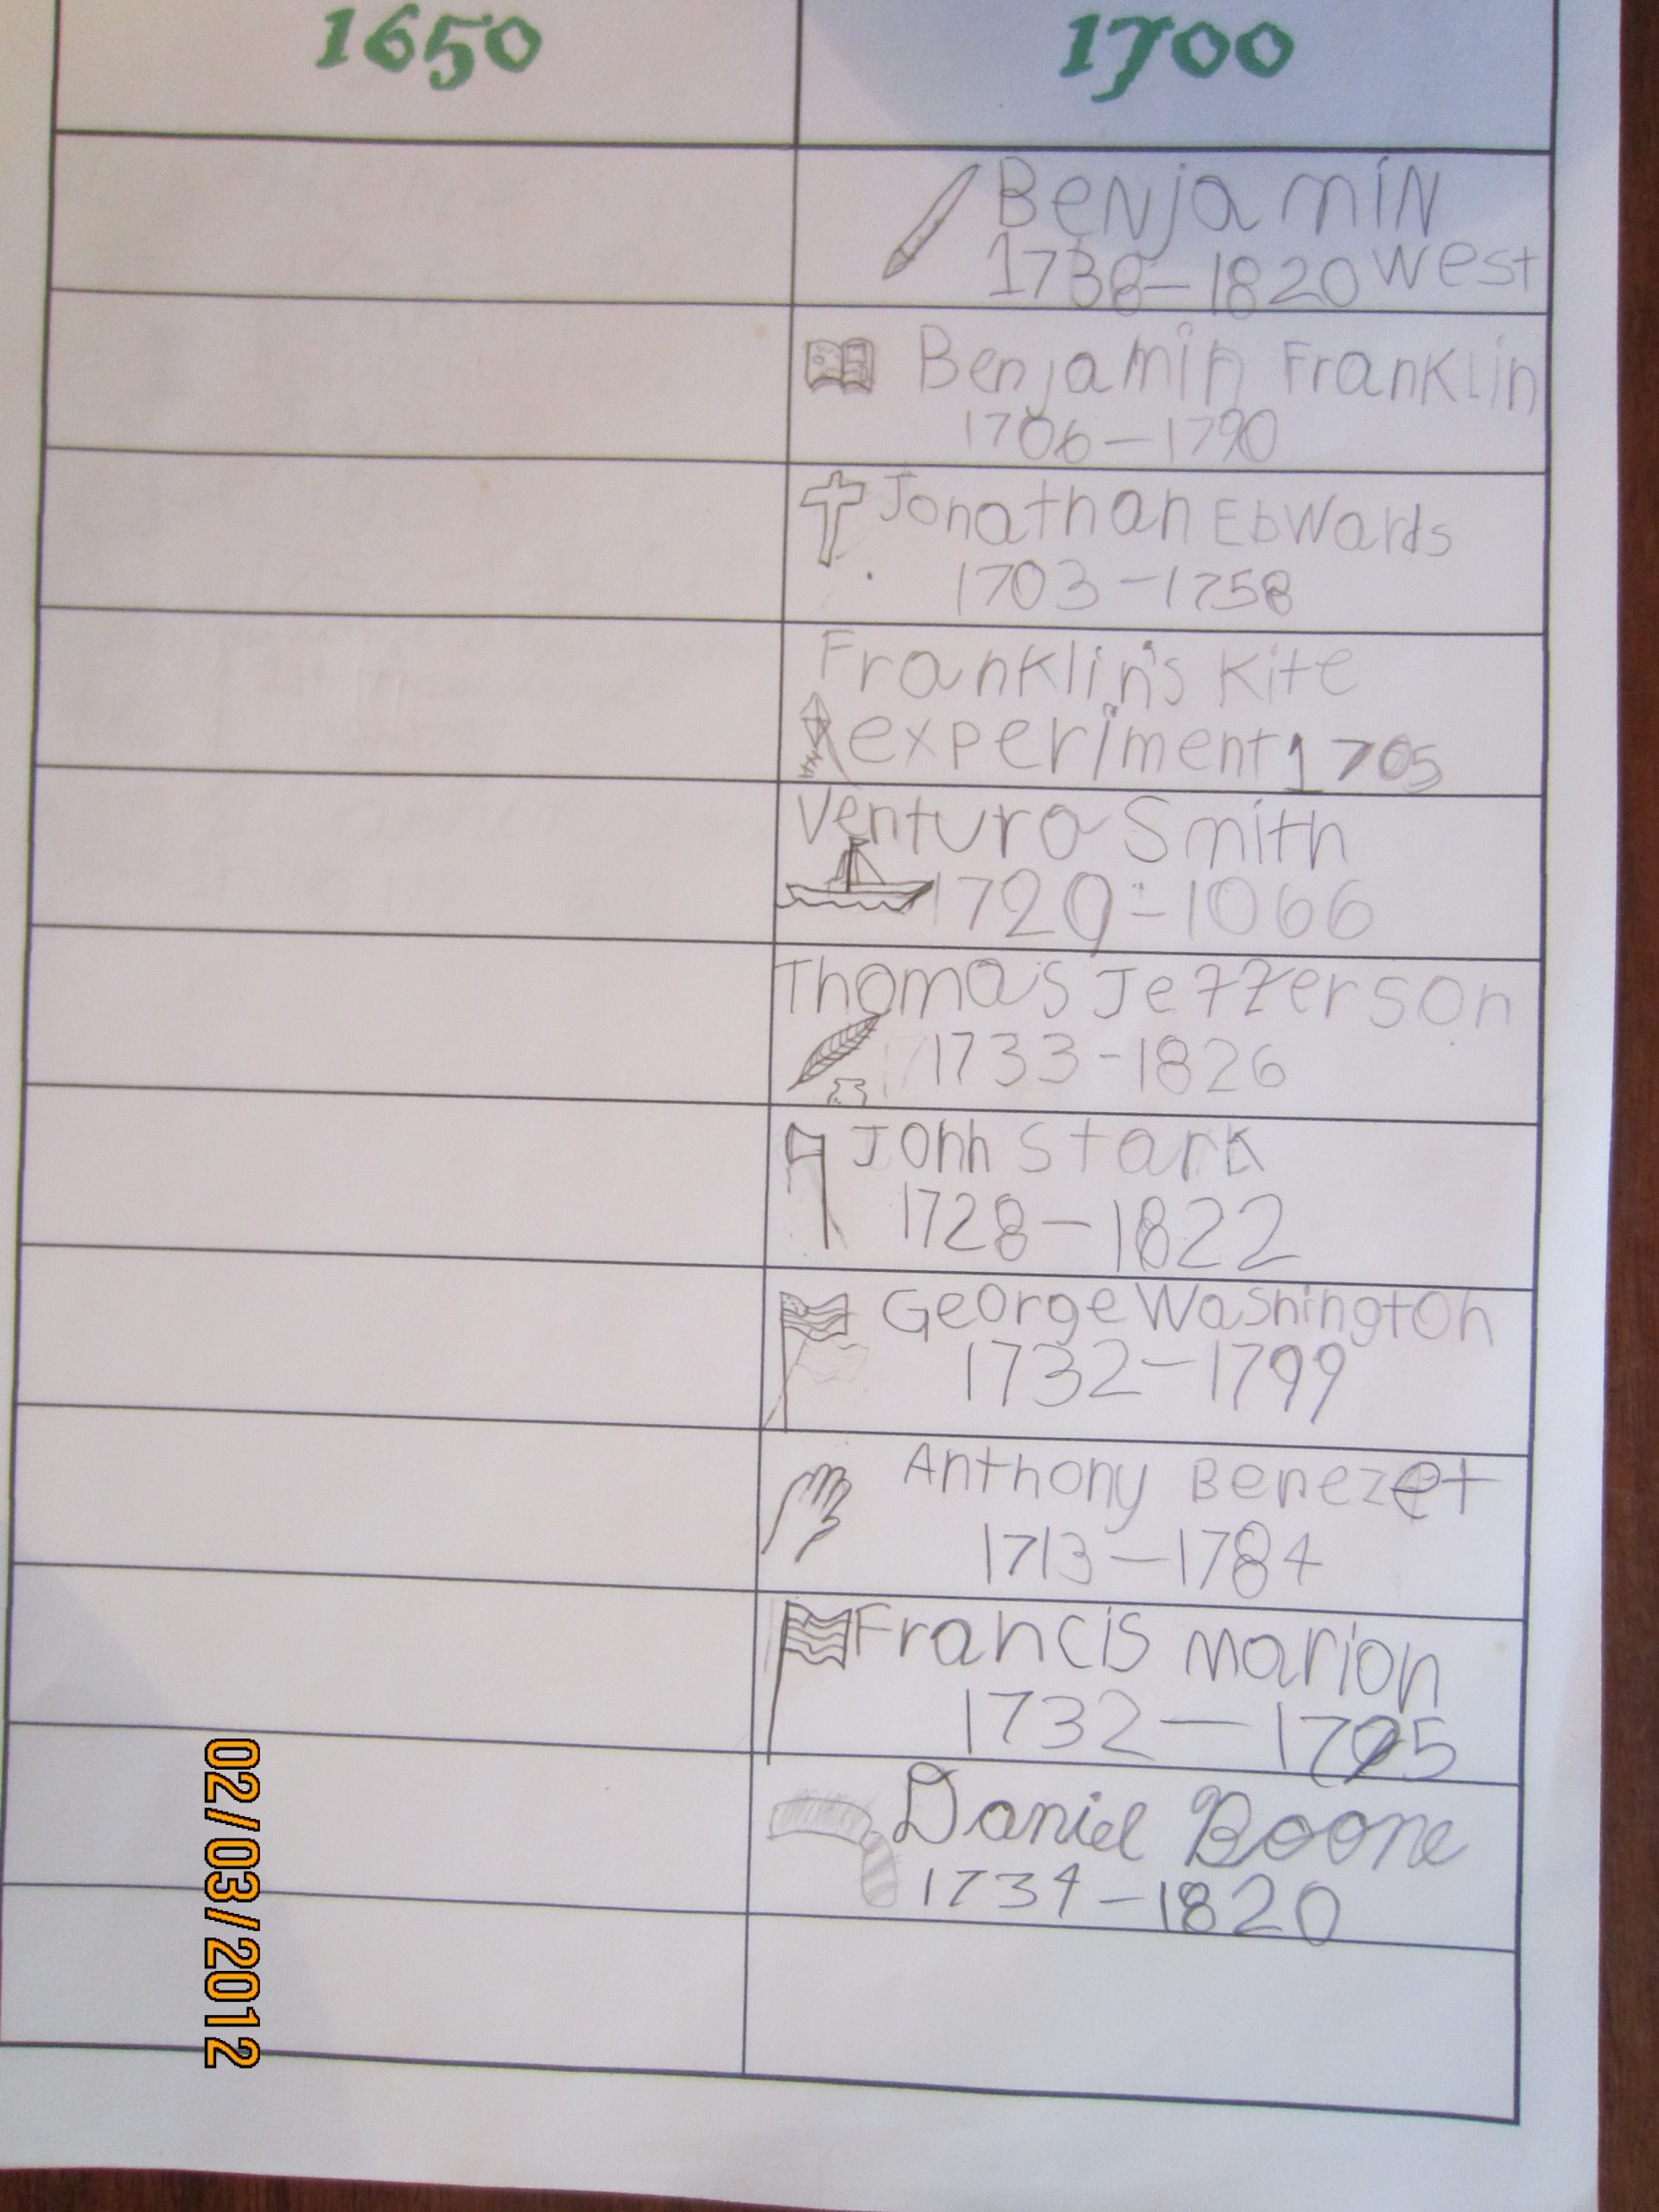 1650 1700
Benjamin
1738-1820 West
Benjamin Franklin
1706-1790
Jonathan EbWards
1703-1758
Franklin's Kite
experiment 1705
Venture Smith
1729-1066
Thomas Jefferson
1733-1826
John Stark
1728-1822
George Washington
1732-1799
Anthony Benezet
1713-1784
Francis marion
1732-1795
Daniel Boone
1734-1820
02/03/2012